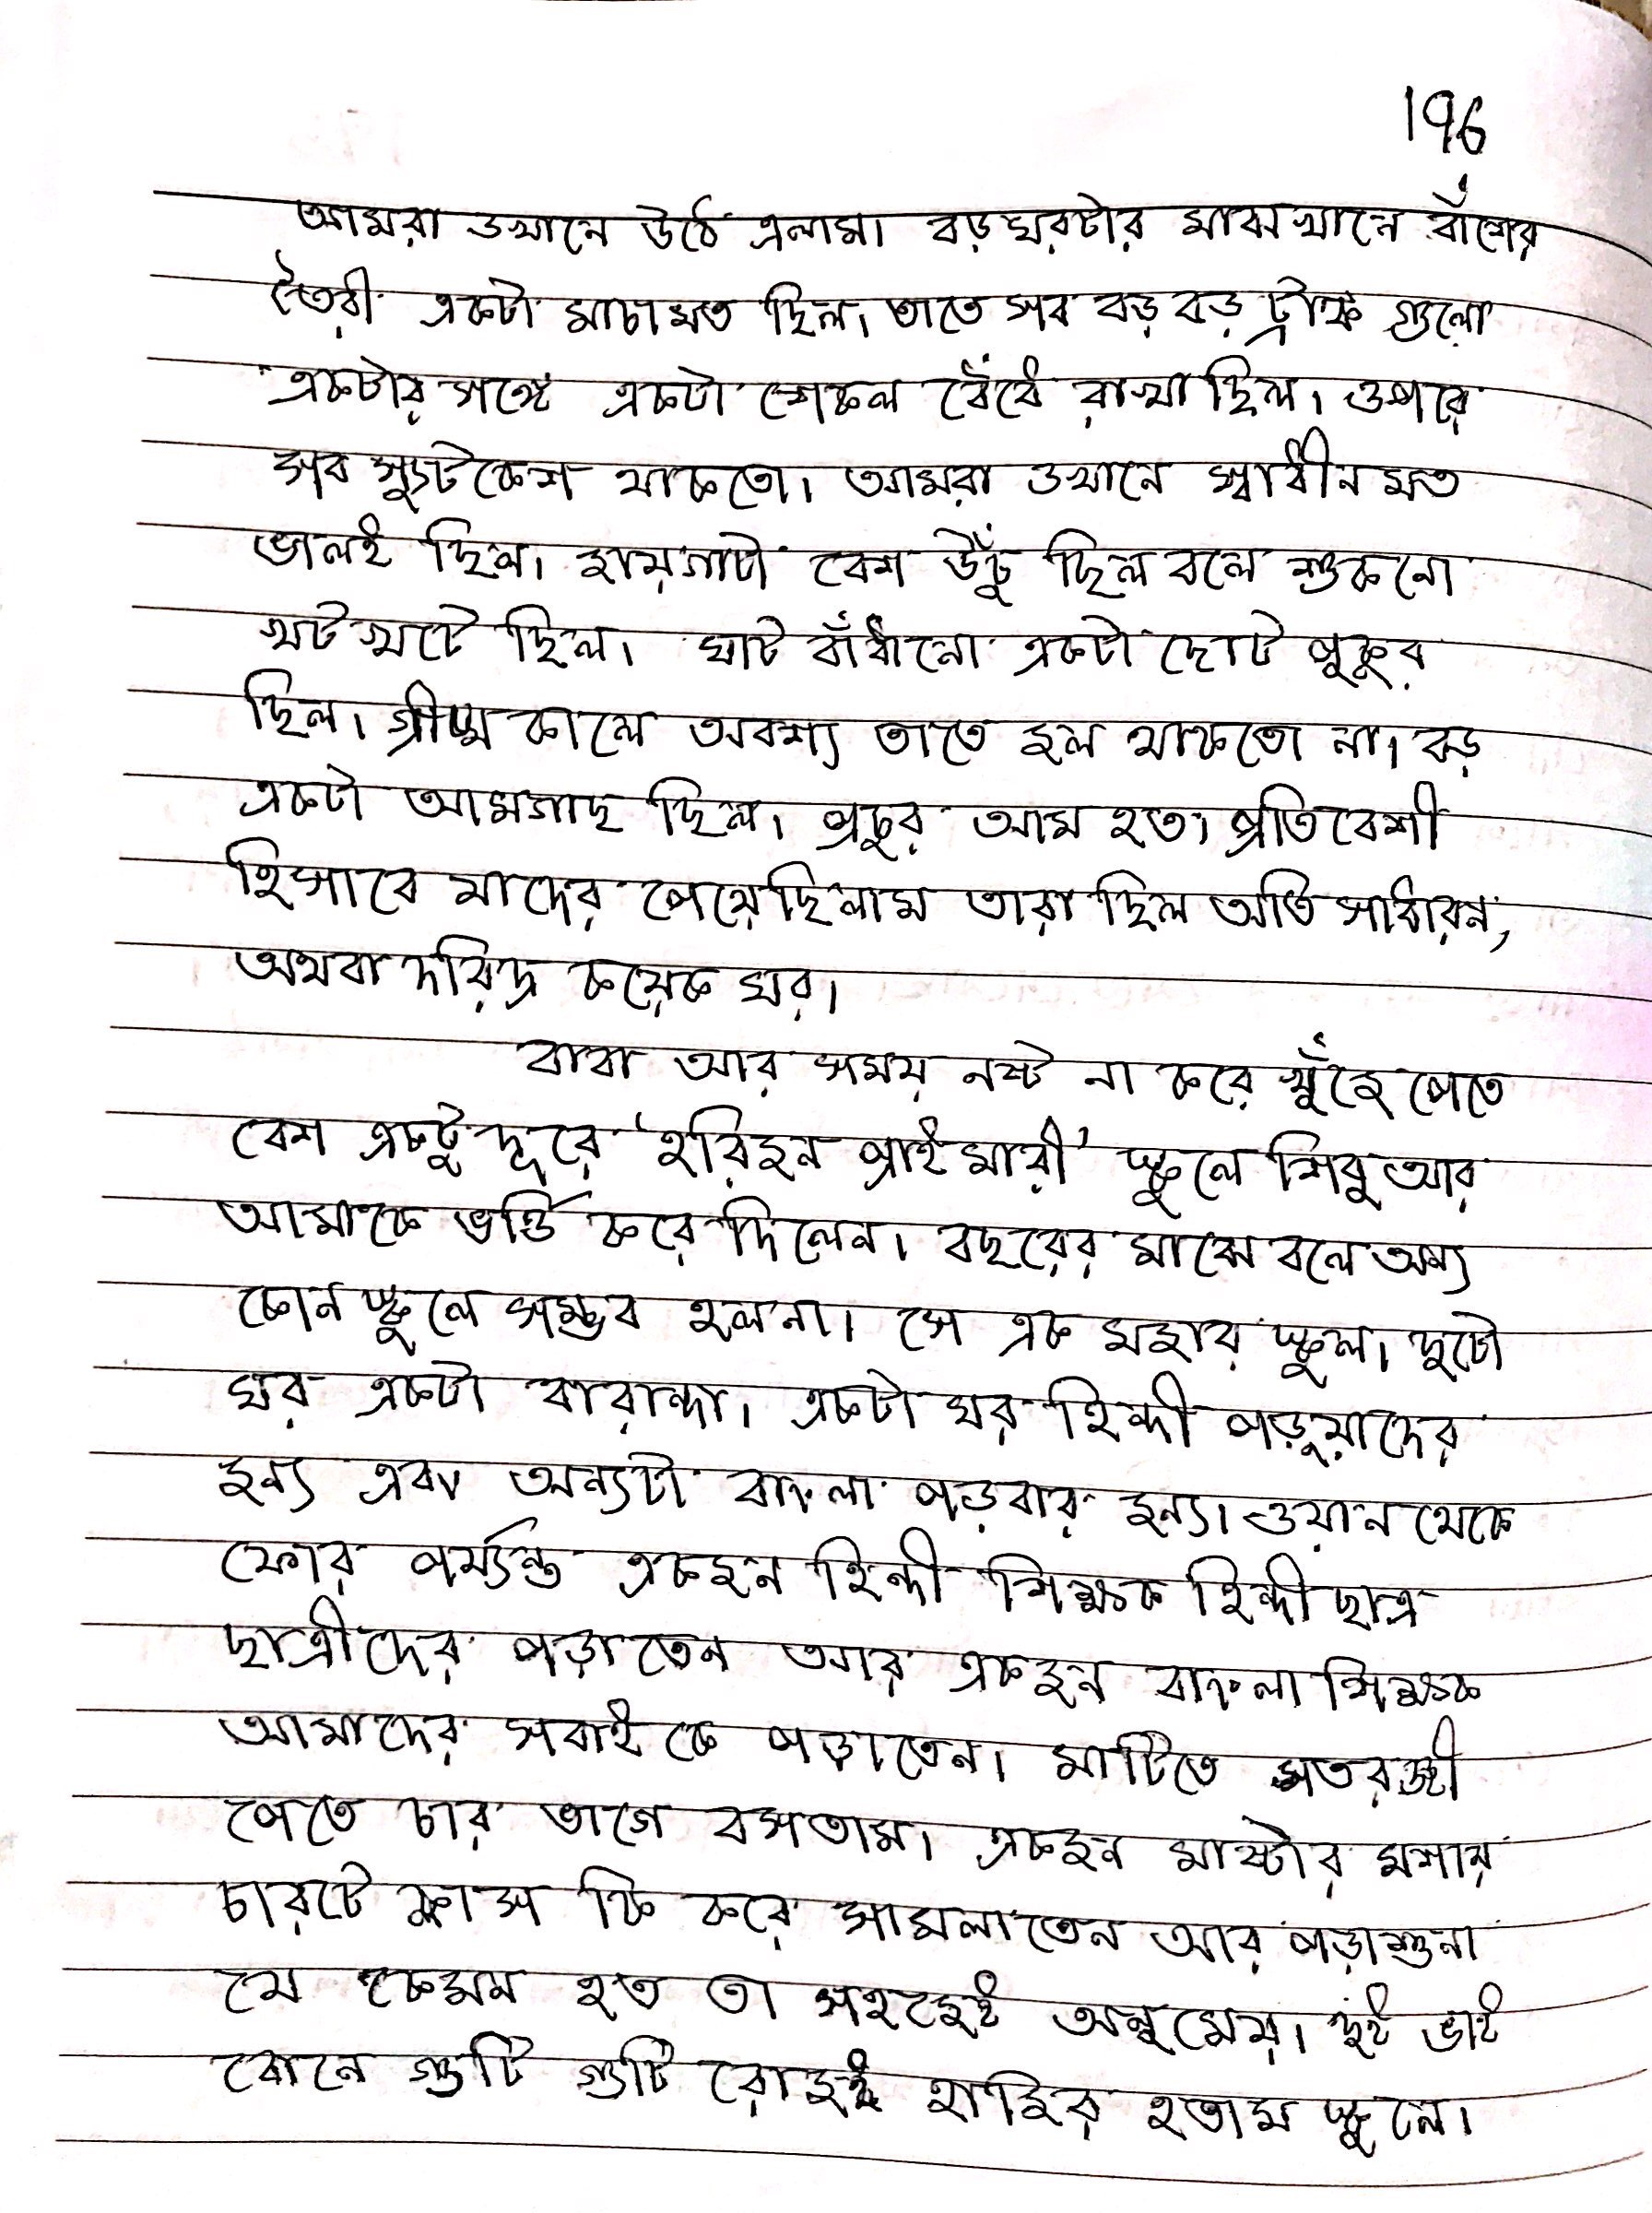 196
আমরা ওখানে উঠে এলাম। বড় ঘরটার মাঝখানে বাঁশের
তৈরী একটা মাচা মত ছিল। তাতে সব বড় বড় ট্রাঙ্ক গুলো
একটার সঙ্গে একটা শেকল বেঁধে রাখা ছিল। ওপরে
সব স্যুটকেশ থাকতো। আমরা ওখানে স্বাধীন মত
ভালই ছিল। জায়গাটা বেশ উঁচু ছিল বলে শুকনো
খট খটে ছিল। ঘাট বাঁধানো একটা ছোট পুকুর
ছিল। গ্রীষ্ম কালে অবশ্য তাতে জল থাকতো না। বড়
একটা আমগাছ ছিল। প্রচুর আম হত। প্রতিবেশী
হিসাবে যাদের পেয়েছিলাম তারা ছিল অতি সাধারন,
অথবা দরিদ্র কয়েক ঘর।
বাবা আর সময় নষ্ট না করে খুঁজে পেতে
বেশ একটু দূরে 'হরিজন প্রাইমারী' স্কুলে শিবু আর
আমাকে ভর্ত্তি করে দিলেন। বছরের মাঝে বলে অন্য
কোন স্কুলে সম্ভব হলনা। সে এক মজার স্কুল। দুটো
ঘর একটা বারান্দা। একটা ঘর হিন্দী পড়ুয়াদের
জন্য এবং অন্যটা বাংলা পড়বার জন্য। ওয়ান থেকে
ফোর পর্য্যন্ত একজন হিন্দী শিক্ষক হিন্দী ছাত্র
ছাত্রীদের পড়াতেন আর একজন বাংলা শিক্ষক
আমাদের সবাইকে পড়াতেন। মাটিতে সতরঞ্চী
পেতে চার ভাগে বসতাম। একজন মাষ্টার মশায়
চারটে ক্লাস কি করে সামলাতেন আর পড়াশুনা
যে কেমন হত তা সহজেই অনুমেয়। দুই ভাই
বোনে গুটি গুটি রোজই হাজির হতাম স্কুলে।